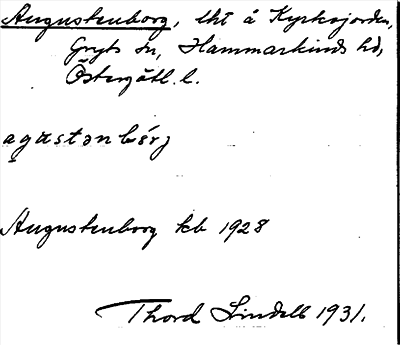 Augustenborg, lht å Kyrksjorden,
Gryts sn, Hammarkinds hd,
Östergötl. l.
agustənbórj
Augustenborg kb 1928
Thord Lindell 1931.